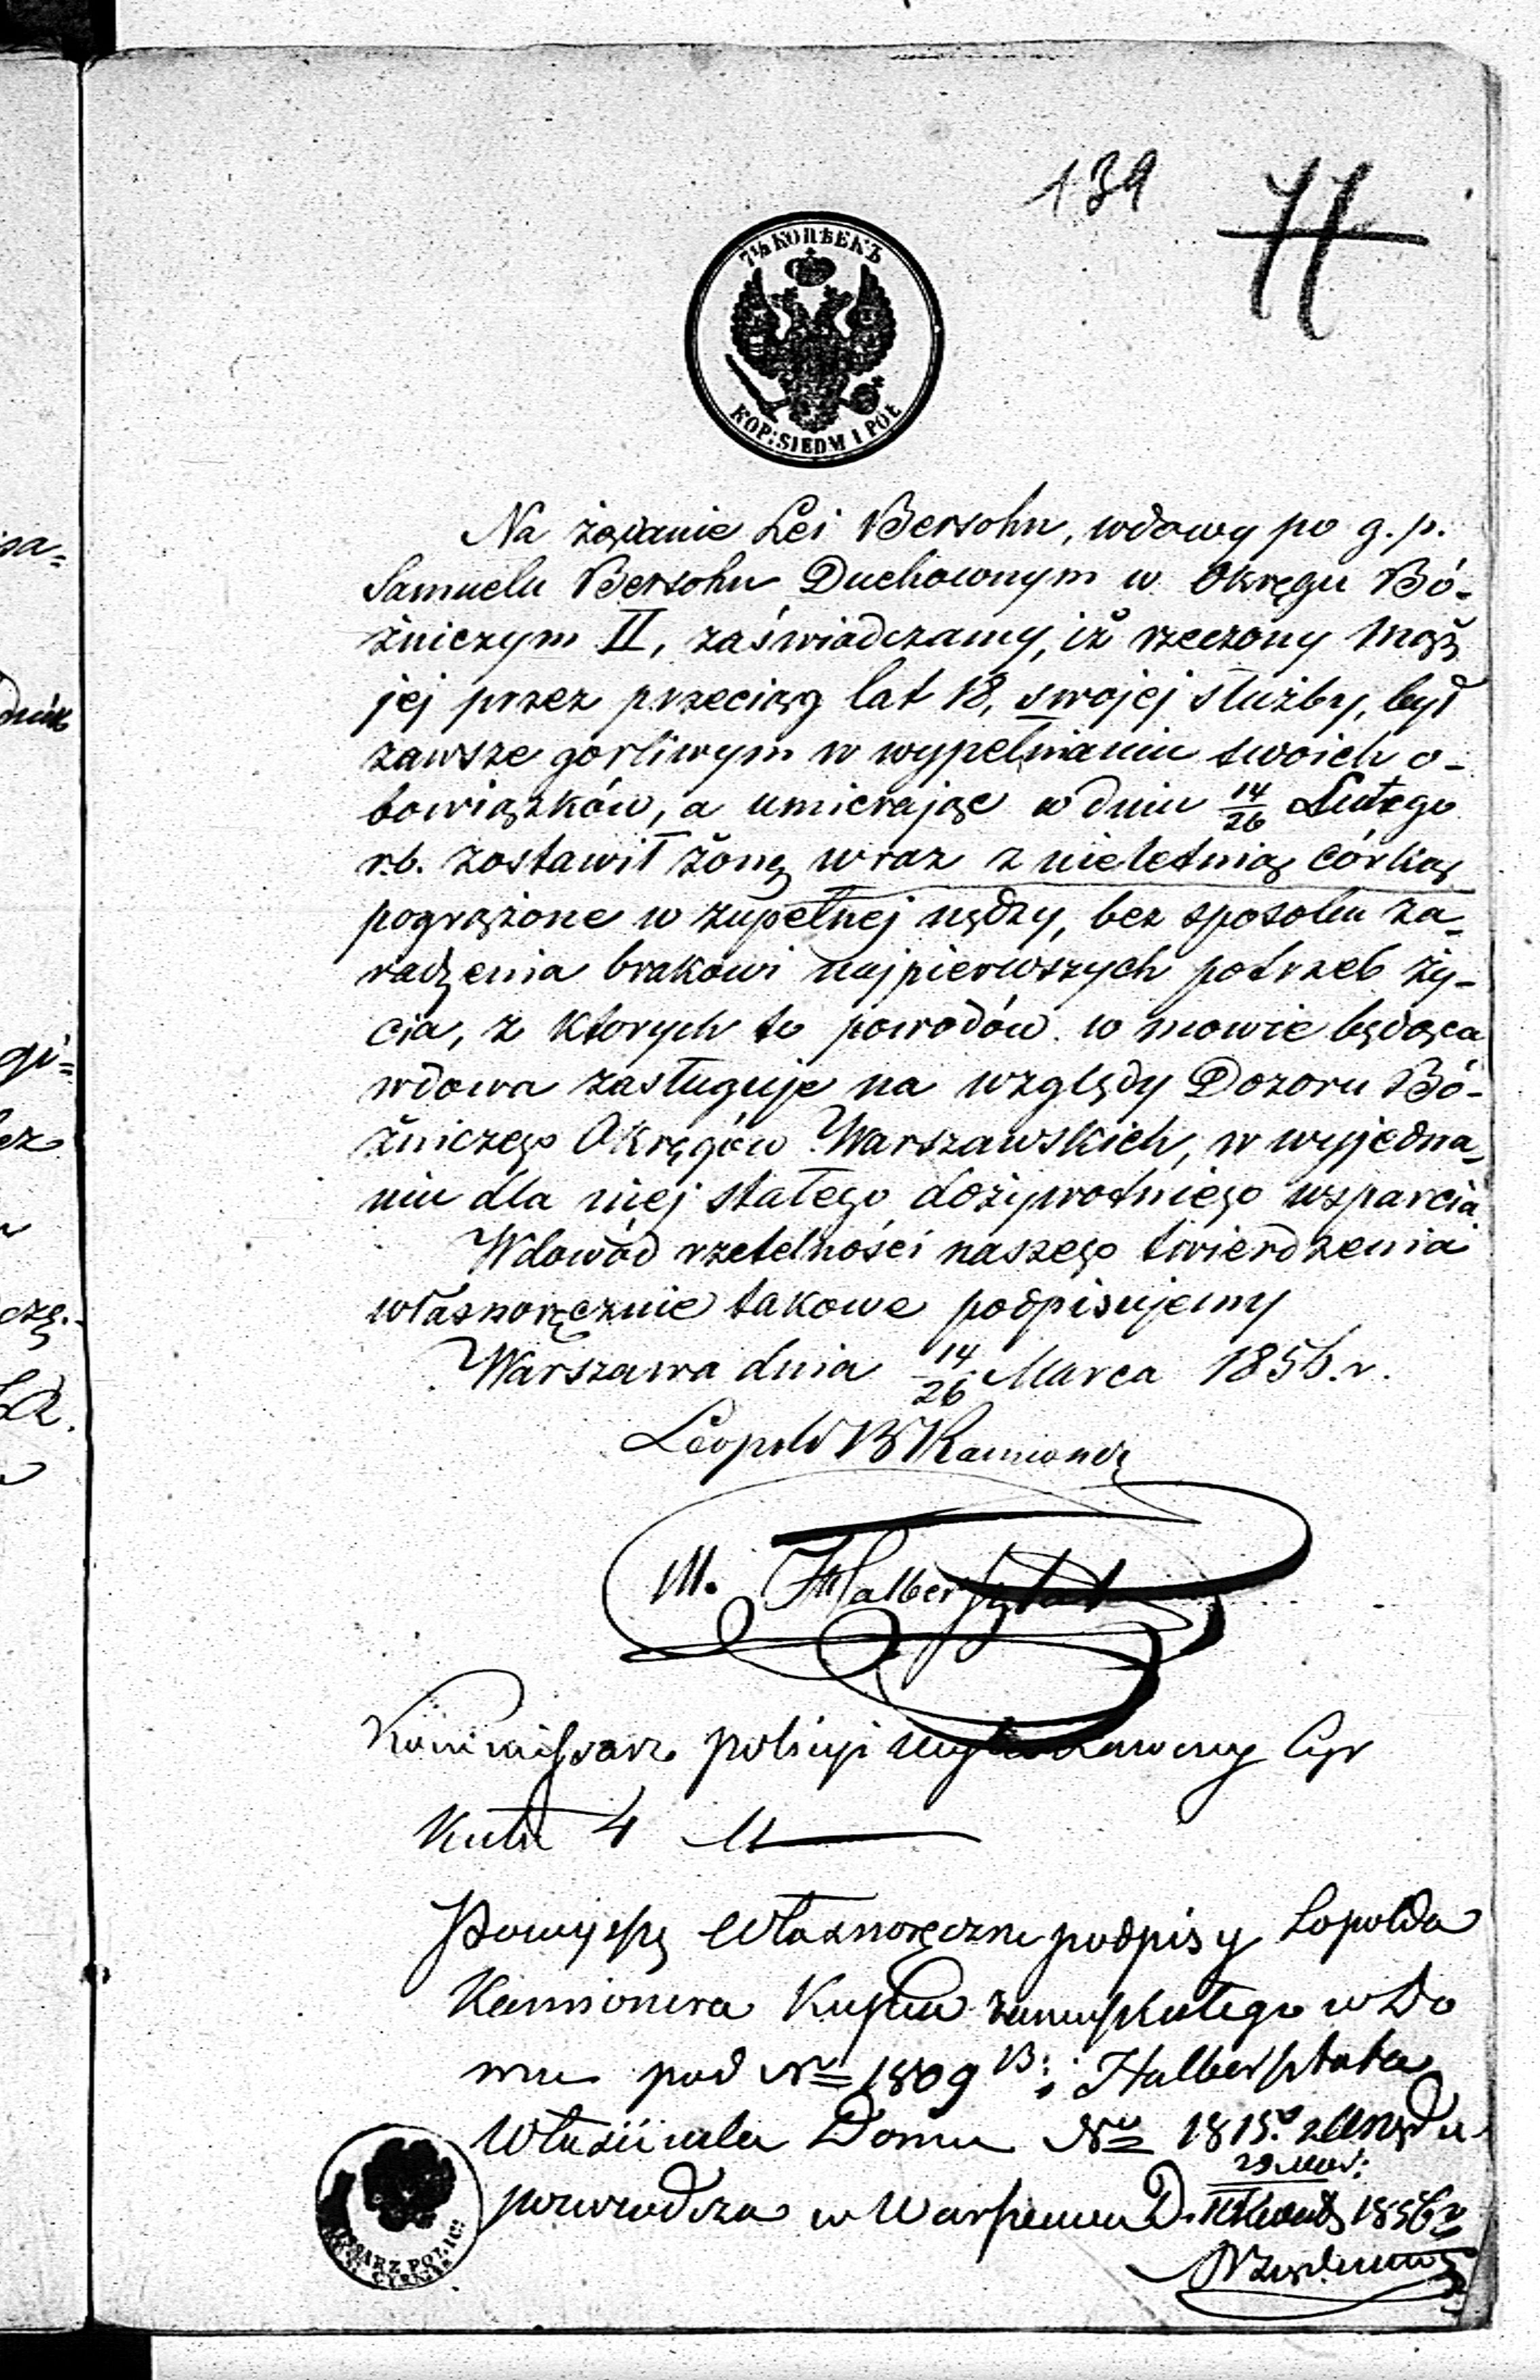 139
77
7½ КОПѢЕКЪ
KOP: SIEDM I PÓŁ
Na żądanie Lei Bersohn, wdowy po ś. p.
Samuelu Bersohn Duchownym w Okręgu Bó-
żniczym II, zaświadczamy, iż rzeczony mąż
jej przez przeciąg lat 18, swojej służby, był
zawsze gorliwym w wypełnianiu swoich o-
bowiązków, a umierając w dniu 14/26 Lutego
r.b. zostawił żonę wraz z nieletnią córką
pogrążone w zupełnej nędzy, bez sposobu za-
radzenia brakowi najpierwszych potrzeb ży-
cia, z ktorych to powodów w mowie będąca
wdowa zasługuje na względy Dozoru Bó-
żniczego Okręgów Warszawskich, w wyjedna-
niu dla niej stałego dożywotniego wsparcia
Wdowód rzetelności naszego twierdzenia
własnoręcznie takowe podpisujemy
Warszawa dnia 14/26 Marca 1856. r.
Leopold B Kamioner
M. Halbersztat
Kommissarz policyi Cyr
kułu 4
Powyższe własnoręczne podpisy Lopolda
Kamionera Kupca zamieszkałego w Do
mu pod No 1809 B: i Halbersztata
Właściciela Domu No 1815. z Urzędu
poswiadcza w Warszawie D. 1856 r